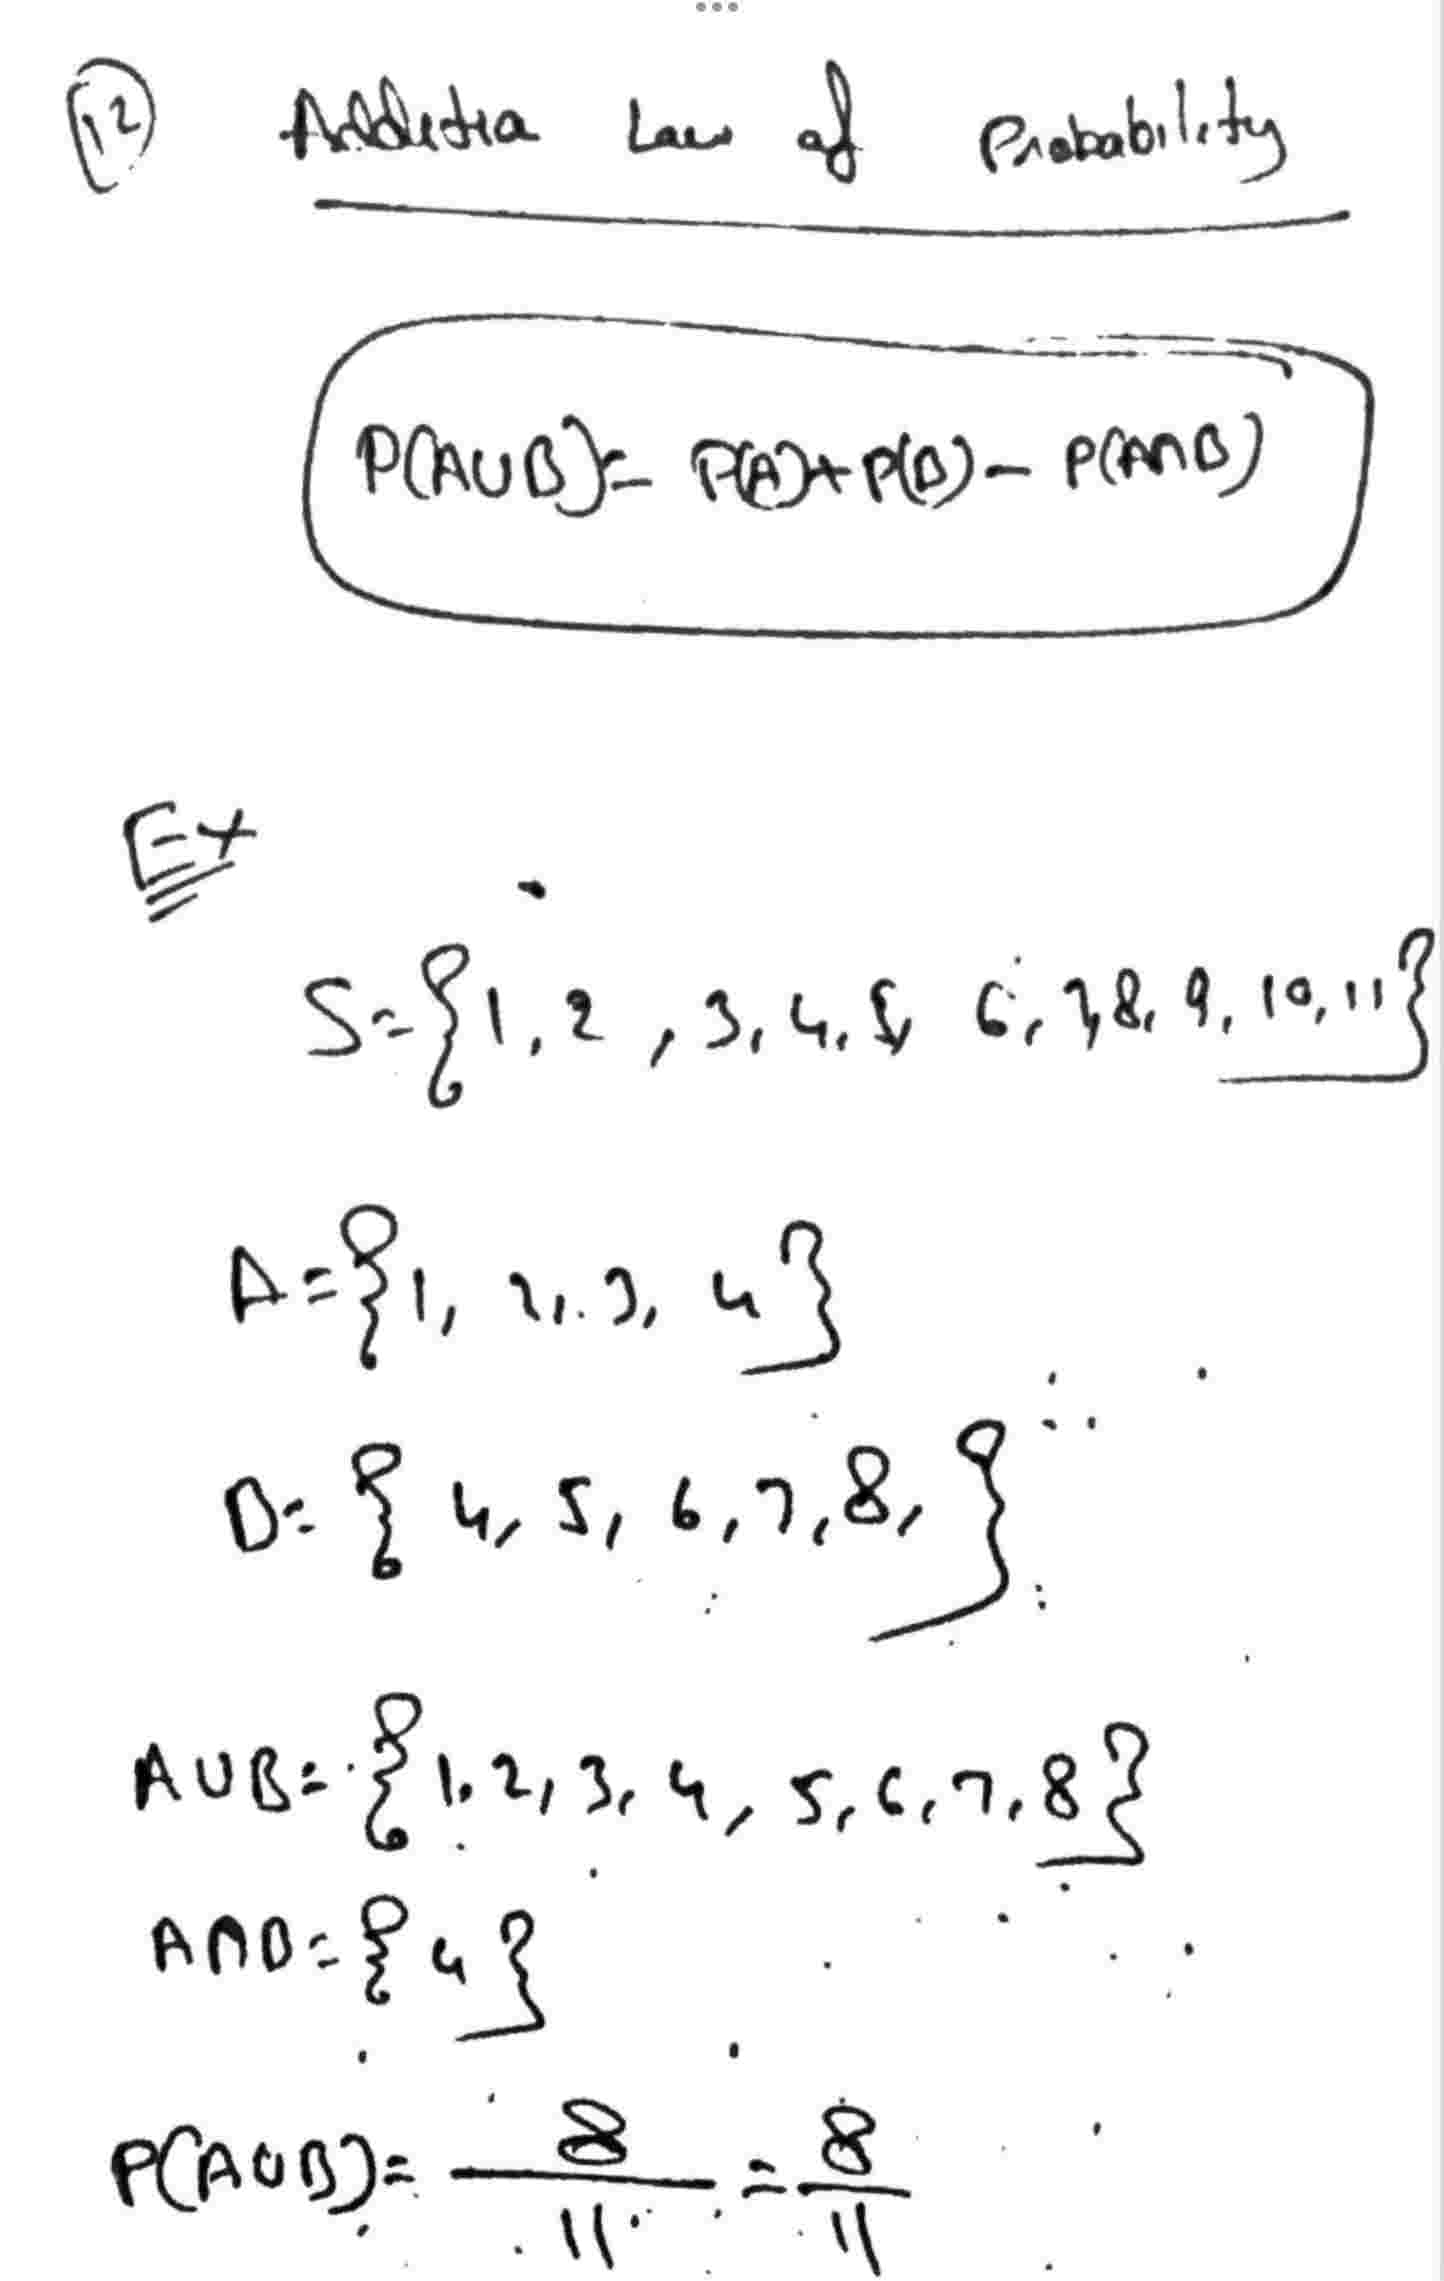 12 Addition Law of Probability
P(A∪B)= P(A)+P(B)- P(A∩B)
Ex
S={1,2,3,4,5,6,7,8,9,10,11}
A={1,2,3,4}
B={4,5,6,7,8,}
A∪B={1,2,3,4,5,6,7,8}
A∩B={4}
P(A∪B)= 8/11 = 8/11